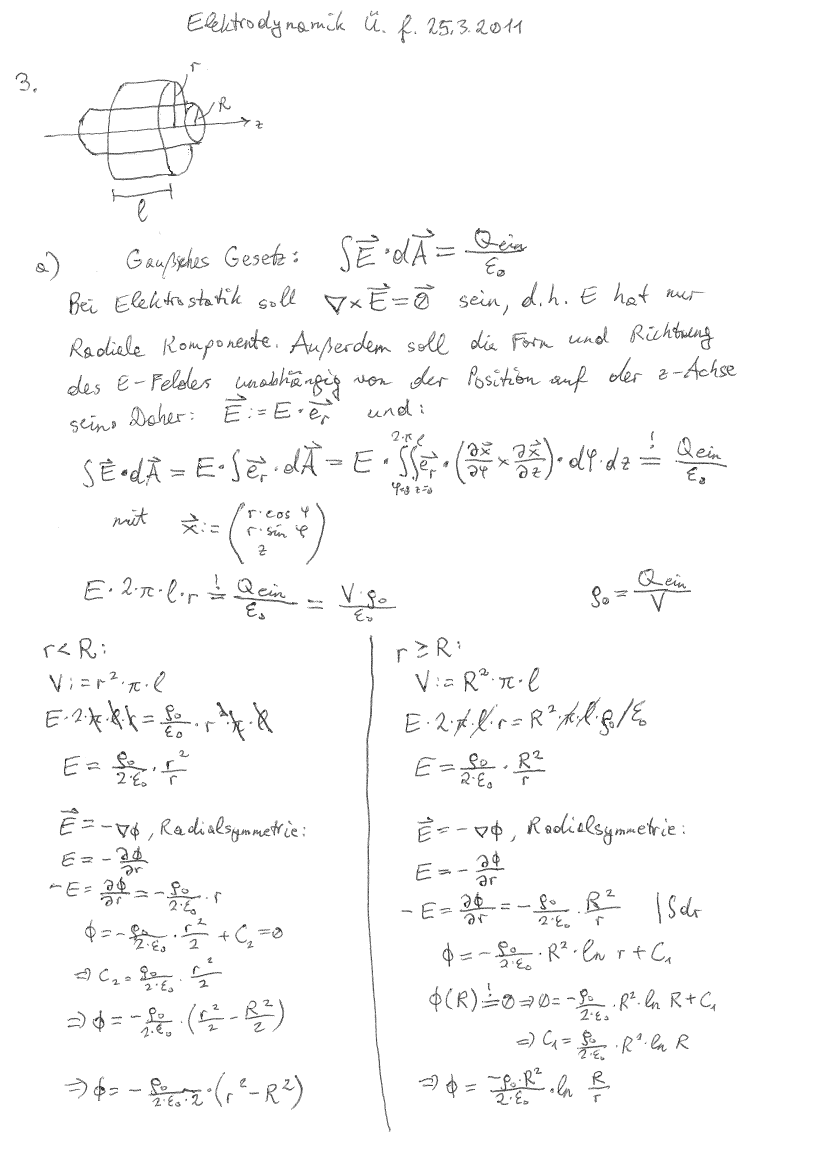 Elektrodynamik Ü. f. 25.3.2011
3.
r
R
z
l
a) Gaußsches Gesetz: ∫E⃗·dA⃗ = Qein/ε₀
Bei Elektrostatik soll ∇×E⃗=0⃗ sein, d.h. E hat nur
Radiale Komponente. Außerdem soll die Form und Richtung
des E-Feldes unabhängig von der Position auf der z-Achse
sein. Daher: E⃗ := E·e⃗ᵣ und:
∫E⃗·dA⃗ = E·∫e⃗ᵣ·dA⃗ = E·∫_{φ=0}^{2·π}∫_{z=0}^{l} e⃗ᵣ·(∂x⃗/∂φ × ∂x⃗/∂z)·dφ·dz =! Qein/ε₀
mit x⃗ := (r·cos φ
r·sin φ
z)
E·2·π·l·r =! Qein/ε₀ = V·ρ₀/ε₀ ρ₀ = Qein/V
r<R:
V:=r²·π·l
E·2·π·l·r = ρ₀/ε₀·r²·π·l
E = ρ₀/(2·ε₀)·r²/r
E⃗ = -∇ϕ, Radialsymmetrie:
E = -∂ϕ/∂r
-E = ∂ϕ/∂r = -ρ₀/(2·ε₀)·r
ϕ = -ρ₀/(2·ε₀)·r²/2 + C₂ = 0
⇒ C₂ = ρ₀/(2·ε₀)·r²/2
⇒ ϕ = -ρ₀/(2·ε₀)·(r²/2 - R²/2)
⇒ ϕ = -ρ₀/(2·ε₀·2)·(r²-R²)
r≥R:
V:=R²·π·l
E·2·π·l·r = R²·π·l·ρ₀/ε₀
E = ρ₀/(2·ε₀)·R²/r
E⃗ = -∇ϕ, Radialsymmetrie:
E = -∂ϕ/∂r
-E = ∂ϕ/∂r = -ρ₀/(2·ε₀)·R²/r |∫dr
ϕ = -ρ₀/(2·ε₀)·R²·ln r + C₁
ϕ(R) =! 0 ⇒ 0 = -ρ₀/(2·ε₀)·R²·ln R + C₁
⇒ C₁ = ρ₀/(2·ε₀)·R²·ln R
⇒ ϕ = -ρ₀·R²/(2·ε₀)·ln R/r